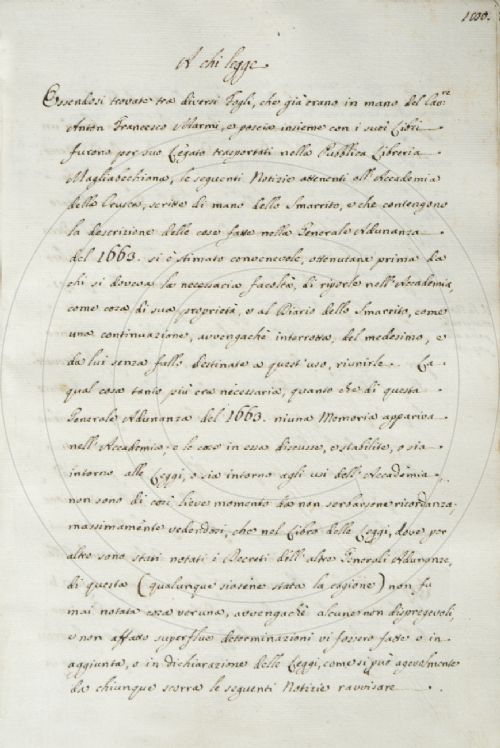 1000.
A chi legge
Essendosi trovate tra diversi Fogli, che già erano in mano del Cav:re
Anton Francesco Marmi, e poscia insieme con i suoi Libri
furono per suo Legato trasportati nella Pubblica Libreria
Magliabechiana, le seguenti Notizie attenenti all'Accademia
della Crusca, scritte di mano dello Smarrito, e che contengono
la descrizione delle cose fatte nella Generale Adunanza
del 1663. si è stimato convenevole, ottenutana prima da
chi si doveva la necessaria facoltà, di riporle nell'Accademia,
come cosa di sua proprietà, e al Diario dello Smarrito, come
una continuazione, avvengachè interrotta, del medesimo, e
da lui senza fallo destinate a quest'uso, riunirle. La
qual cosa tanto più era necessaria, quanto che di questa
Generale Adunanza del 1663. niuna Memoria appariva
nell'Accademia; e le cose in essa discusse, e stabilite, o sia
intorno alle Leggi, o sia intorno agli usi dell'Accademia,
non sono di così lieve momento da non serbarsene ricordanza;
massimamente vedendosi, che nel Libro delle Leggi, dove per
altro sono stati notati i Decreti dell'altre Generali Adunanze,
di questa (qualunque siasene stata la cagione) non fu
mai notata cosa veruna, avvengachè alcune non dispregevoli,
e non affatto superflue determinazioni vi fossero fatte o in
aggiunta, o in dichiarazione delle Leggi, come si può agevolmente
da chiunque scorra le seguenti Notizie ravvisare